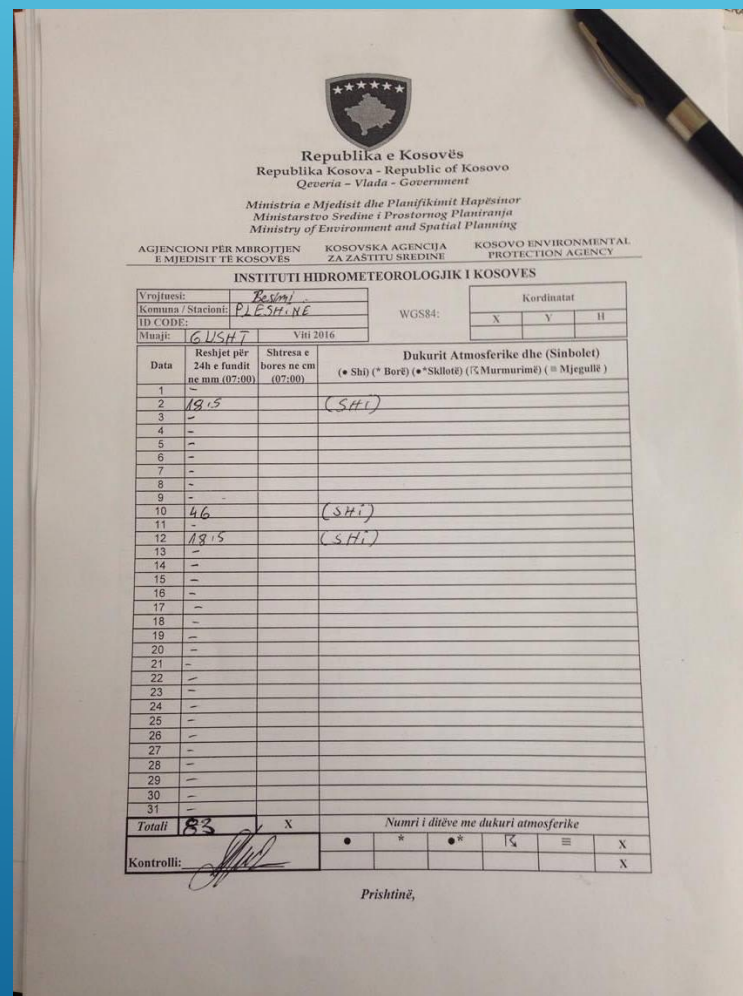 Republika e Kosovës
Republika Kosova - Republic of Kosovo
Qeveria – Vlada - Government
Ministria e Mjedisit dhe Planifikimit Hapësinor
Ministarstvo Sredine i Prostornog Planiranja
Ministry of Environment and Spatial Planning
AGJENCIONI PËR MBROJTJEN E MJEDISIT TË KOSOVËS
KOSOVSKA AGENCIJA ZA ZAŠTITU SREDINE
KOSOVO ENVIRONMENTAL PROTECTION AGENCY
INSTITUTI HIDROMETEOROLOGJIK I KOSOVES
Vrojtuesi: Besimi
Komuna / Stacioni: PLESHINE
ID CODE:
Muaji: GUSHT Viti 2016
WGS84:
Kordinatat
X Y H
Data
Reshjet për 24h e fundit ne mm (07:00)
Shtresa e bores ne cm (07:00)
Dukurit Atmosferike dhe (Sinbolet)
(● Shi) (* Borë) (●*Skllotë) (☈ Murmurimë) ( ≡ Mjegullë )
1 -
2 18.5 (SHi)
3 -
4 -
5 -
6 -
7 -
8 -
9 -
10 46 (SHi)
11 -
12 18.5 (SHi)
13 -
14 -
15 -
16 -
17 -
18 -
19 -
20 -
21 -
22 -
23 -
24 -
25 -
26 -
27 -
28 -
29 -
30 -
31 -
Totali 83 X Numri i ditëve me dukuri atmosferike
● * ●* ☈ ≡ X
Kontrolli: X
Prishtinë,